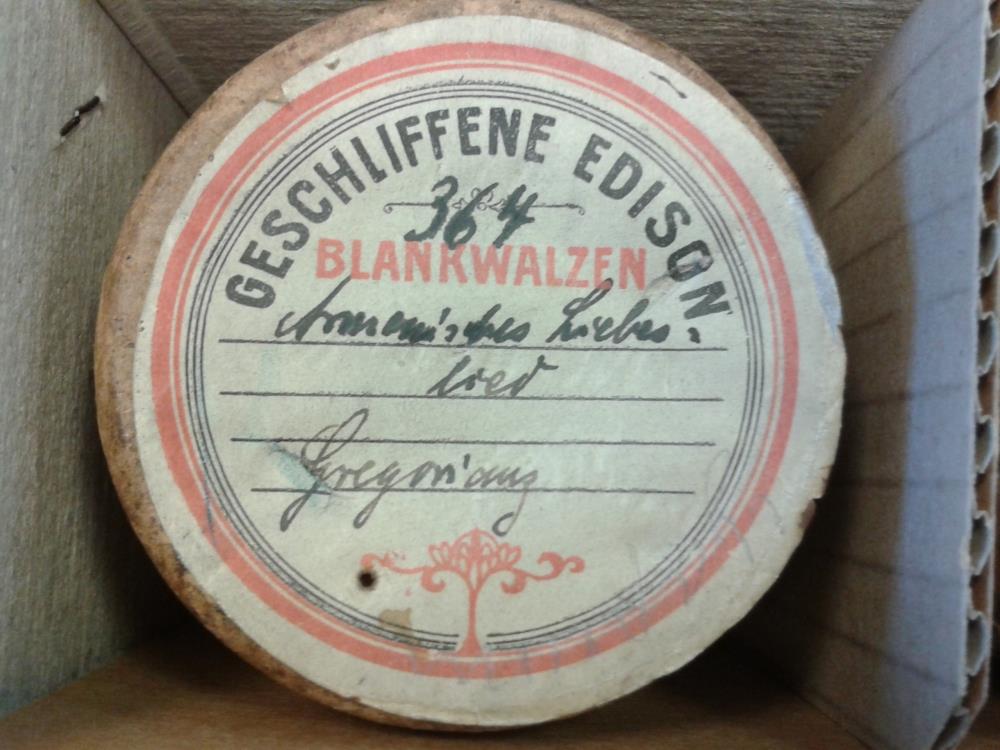 GESCHLIFFENE EDISON
364
BLANKWALZEN
Armenisches Liebes-
lied
Gregorianz